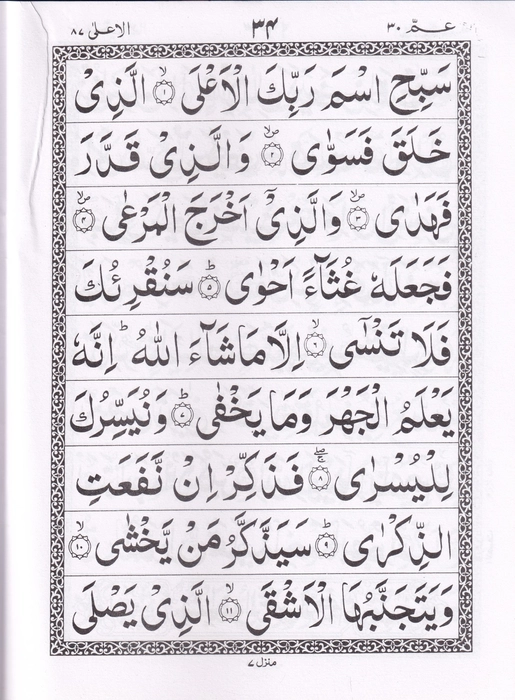 عـمّ ۳۰ ۳۴ الاعلىٰ ۸۷
سَبِّحِ اسْمَ رَبِّكَ الْاَعْلَى ۙ﴿۱﴾ الَّذِىْ
خَلَقَ فَسَوّٰى ۪ۙ﴿۲﴾ وَالَّذِىْ قَدَّرَ
فَهَدٰى ۪ۙ﴿۳﴾ وَالَّذِىْۤ اَخْرَجَ الْمَرْعٰى ۪ۙ﴿۴﴾
فَجَعَلَهٗ غُثَآءً اَحْوٰى ؕ﴿۵﴾ سَنُقْرِئُكَ
فَلَا تَنْسٰٓى ۙ﴿۶﴾ اِلَّا مَا شَآءَ اللّٰهُ ؕ اِنَّهٗ
يَعْلَمُ الْجَهْرَ وَمَا يَخْفٰى ؕ﴿۷﴾ وَنُيَسِّرُكَ
لِلْيُسْرٰى ۚۖ﴿۸﴾ فَذَكِّرْ اِنْ نَّفَعَتِ
الذِّكْرٰى ؕ﴿۹﴾ سَيَذَّكَّرُ مَنْ يَّخْشٰى ۙ﴿۱۰﴾
وَيَتَجَنَّبُهَا الْاَشْقَى ۙ﴿۱۱﴾ الَّذِىْ يَصْلَى
منزل ۷